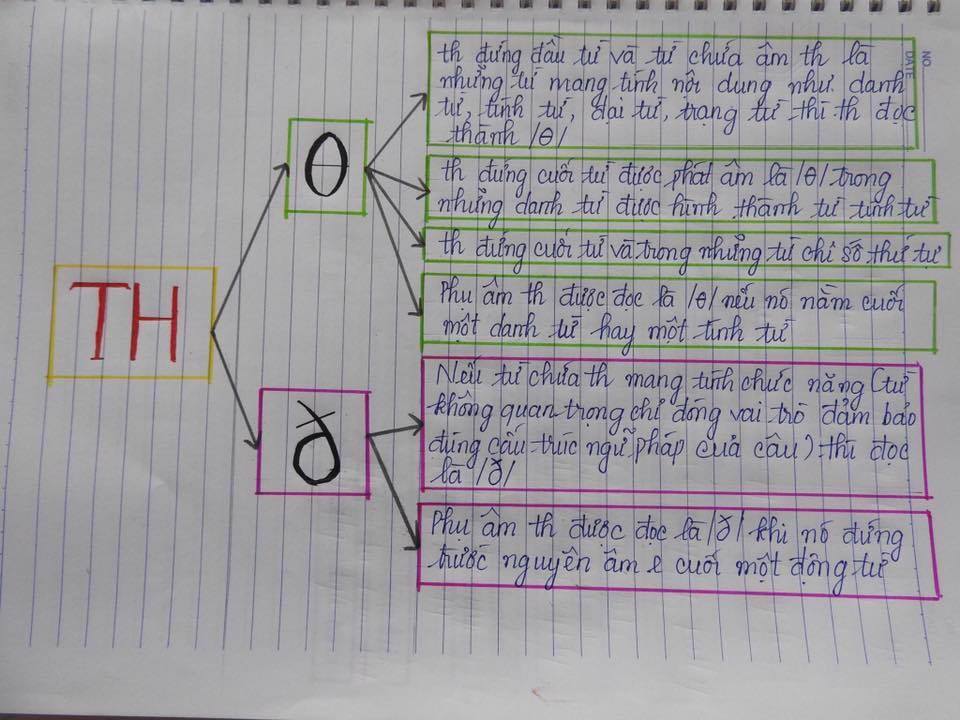 NO
DATE
TH
θ
th đứng đầu từ và từ chứa âm th là
những từ mang tính nội dung như danh
từ, tính từ, đại từ, trạng từ thì th đọc
thành /θ/
th đứng cuối từ được phát âm là /θ/ trong
những danh từ được hình thành từ tính từ
th đứng cuối từ và trong những từ chỉ số thứ tự
Phụ âm th được đọc là /θ/ nếu nó nằm cuối
một danh từ hay một tính từ
ð
Nếu từ chứa th mang tính chức năng (từ
không quan trọng chỉ đóng vai trò đảm bảo
đúng cấu trúc ngữ pháp của câu) thì đọc
là /ð/
Phụ âm th được đọc là /ð/ khi nó đứng
trước nguyên âm e cuối một động từ